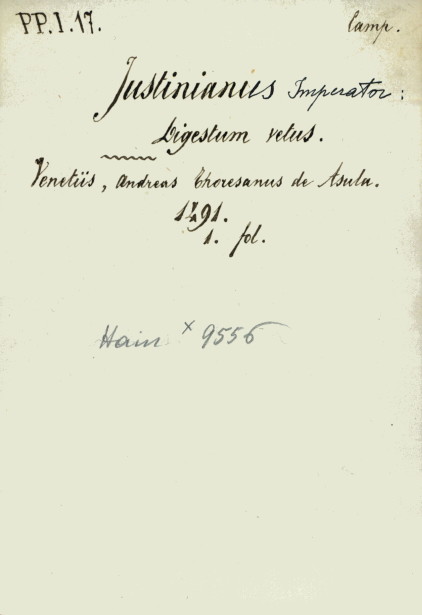 PP.I.17. Camp.
Justinianus Imperator:
Digestum vetus.
Venetiis, Andreas Thoresanus de Asula.
1491.
1. fol.
Hain × 9556